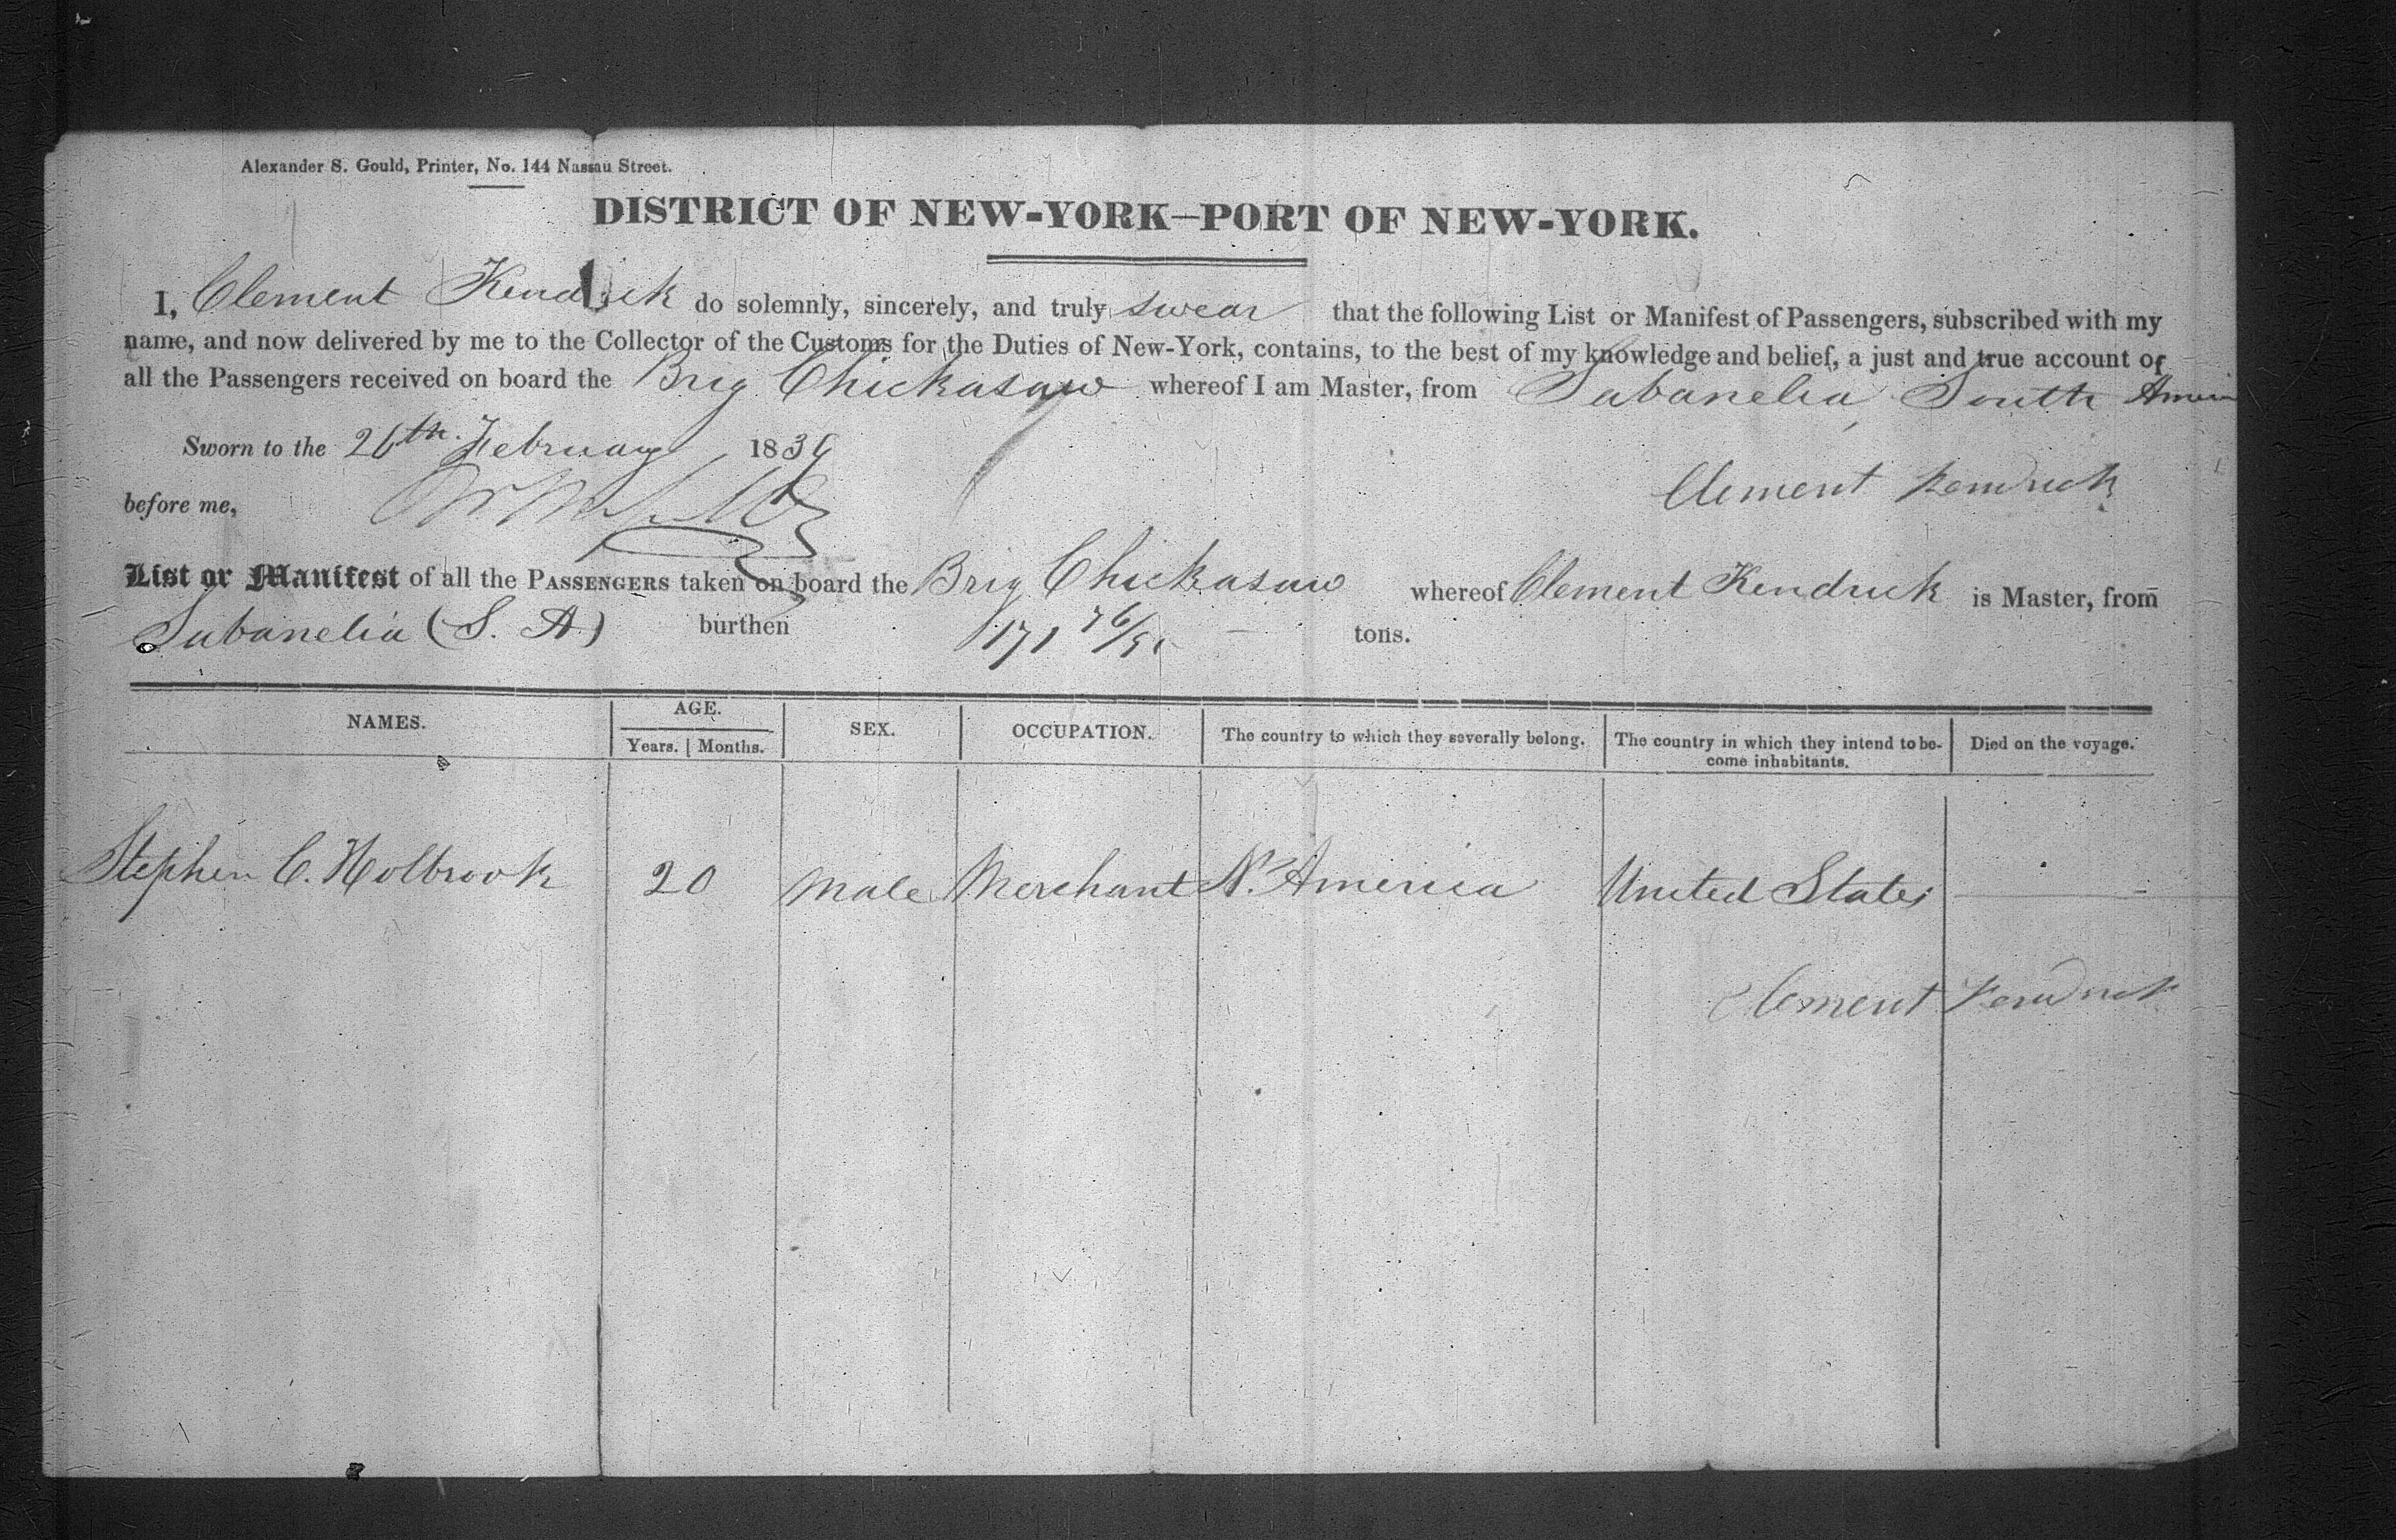 Alexander S. Gould, Printer, No. 144 Nassau Street.
DISTRICT OF NEW-YORK—PORT OF NEW-YORK.
I, Clement Kendrick do solemnly, sincerely, and truly swear that the following List or Manifest of Passengers, subscribed with my
name, and now delivered by me to the Collector of the Customs for the Duties of New-York, contains, to the best of my knowledge and belief, a just and true account of
all the Passengers received on board the Brig Chickasaw whereof I am Master, from Sabanelia, South
Sworn to the 26th February 183
Clement Kendrick
before me,
List or Manifest of all the PASSENGERS taken on board the Brig Chickasaw whereof Clement Kendrick is Master, from
Sabanelia (S. A.) burthen 171 tons.
NAMES. AGE. SEX. OCCUPATION. The country to which they severally belong. The country in which they intend to be- Died on the voyage.
Years. Months. come inhabitants.
Stephen C. Holbrook 20 Male Merchant N. America United States
Clement Kendrick